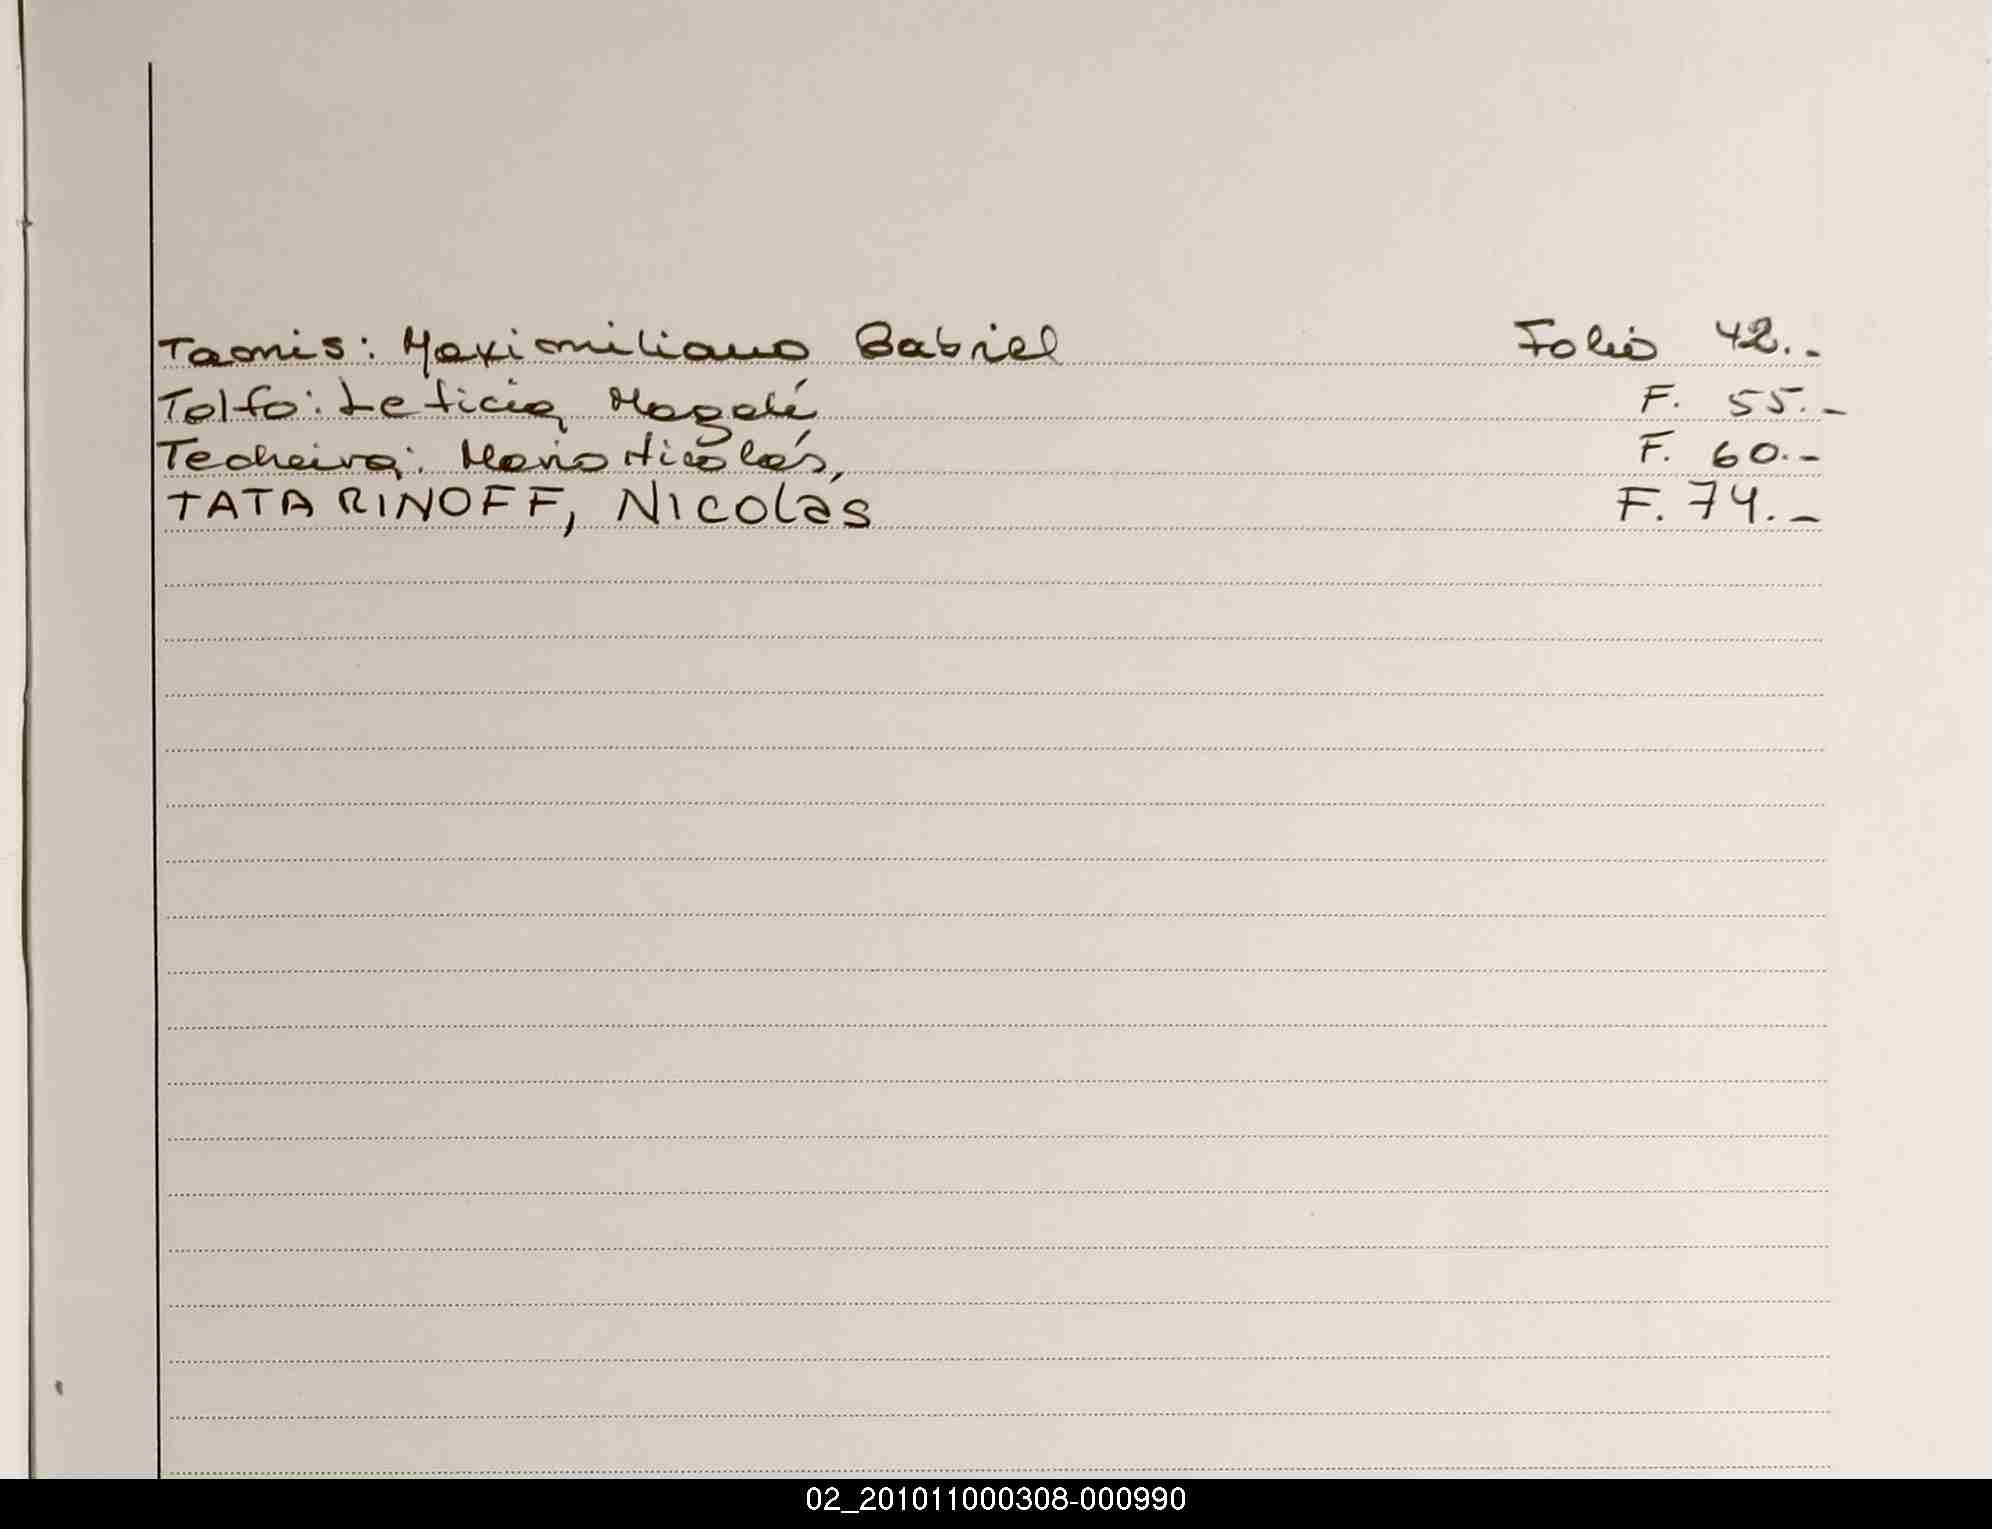 Taonis: Maximiliano Gabriel Folio 42.-
Tolfo: Leticia Magalí F. 55.-
Techeira: Mario Nicolás, F. 60.-
TATARINOFF, Nicolás F. 74.-
02_201011000308-000990